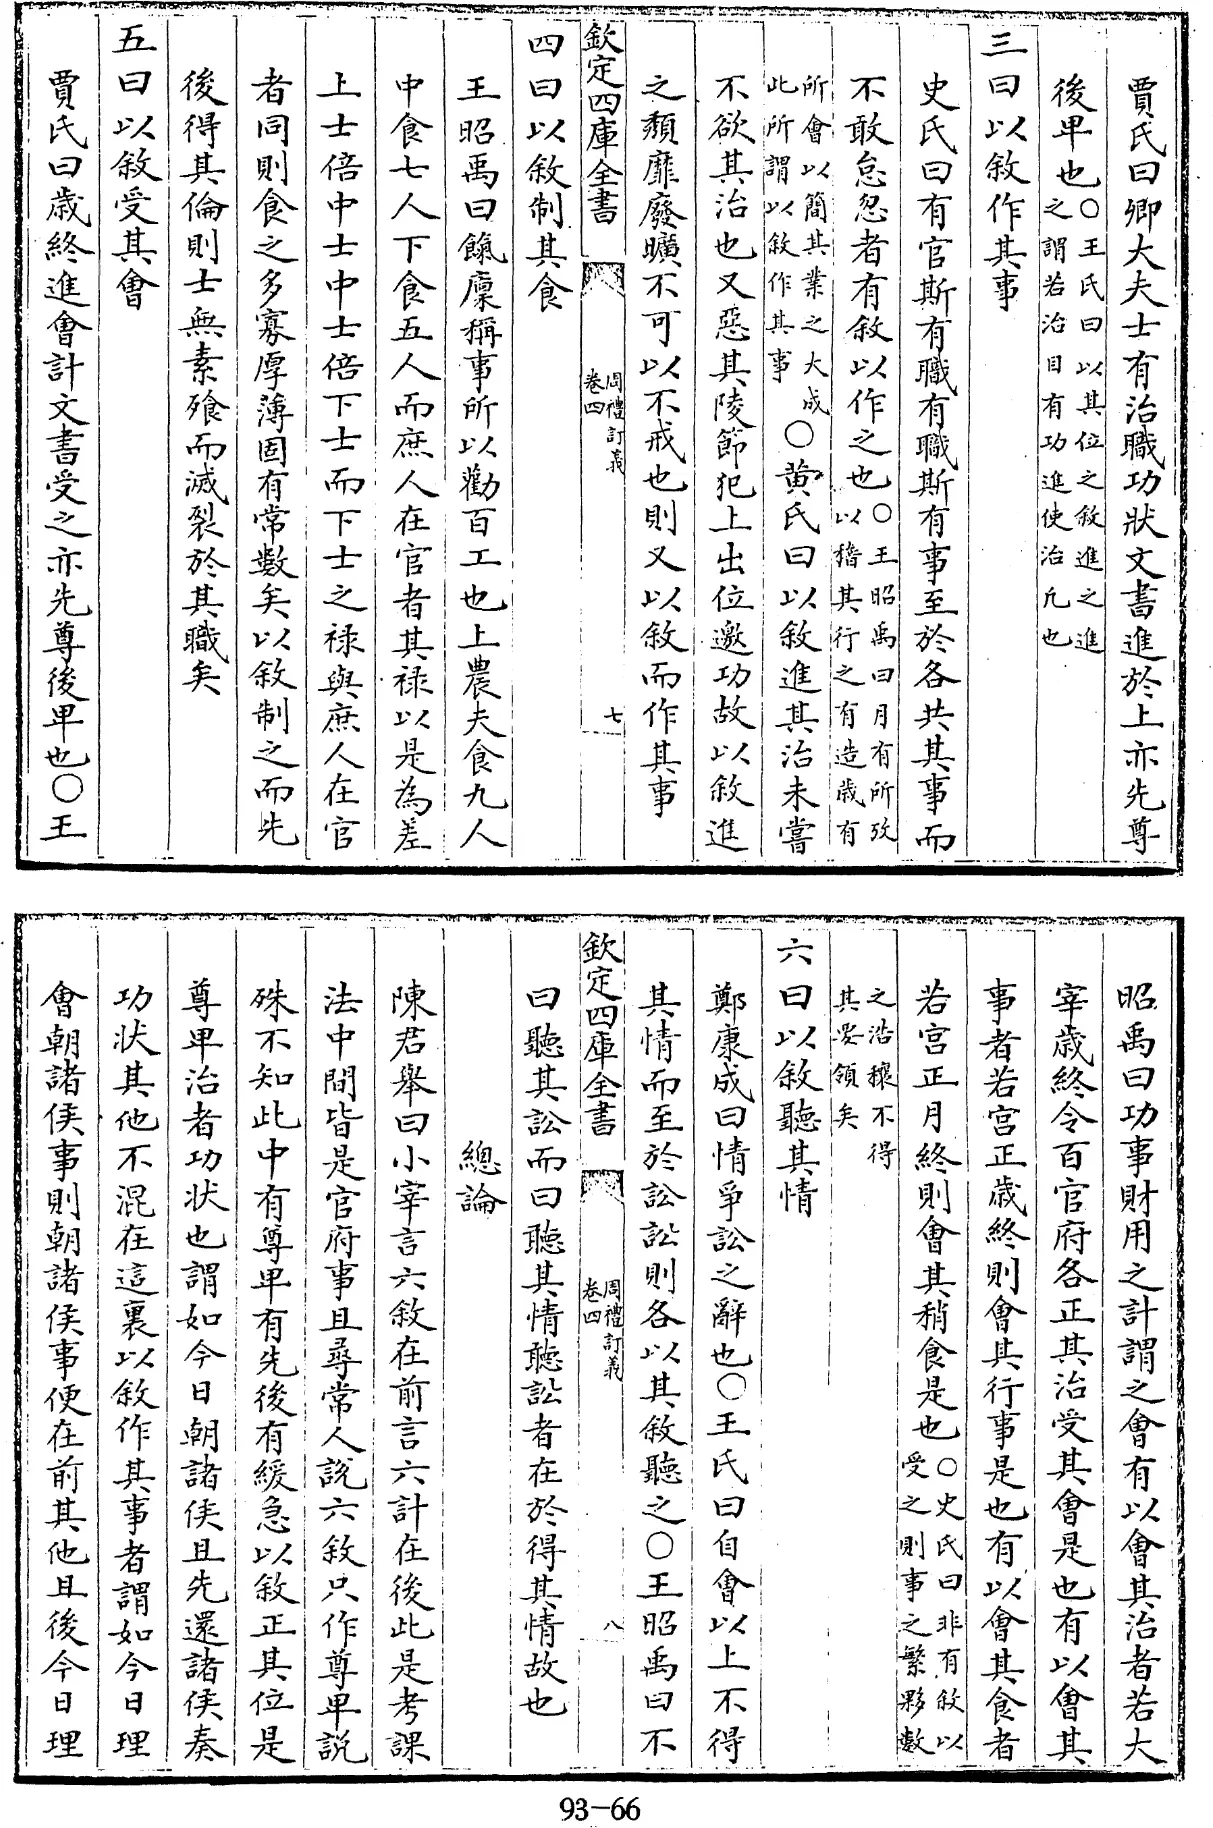 賈氏曰卿大夫士有治職功狀文書進於上亦先尊
後卑也○王氏曰以其位之敘進之進
之謂若治目有功進使治凡也
三曰以敘作其事
史氏曰有官斯有職有職斯有事至於各共其事而
不敢怠忽者有敘以作之也○王昭禹曰月有所攷
以稽其行之有造歲有
所會以簡其業之大成
此所謂以敘作其事○黄氏曰以敘進其治未嘗
不欲其治也又惡其陵節犯上出位邀功故以敘進
之頽靡廢曠不可以不戒也則又以敘而作其事
欽定四庫全書
周禮訂義
卷四
七
四曰以敘制其食
王昭禹曰餼廩稱事所以勸百工也上農夫食九人
中食七人下食五人而庶人在官者其祿以是為差
上士倍中士中士倍下士而下士之祿與庶人在官
者同則食之多寡厚薄固有常數矣以敘制之而先
後得其倫則士無素飱而滅裂於其職矣
五曰以敘受其會
賈氏曰歲終進會計文書受之亦先尊後卑也○王
昭禹曰功事財用之計謂之會有以會其治者若大
宰歲終令百官府各正其治受其會是也有以會其
事者若宫正歲終則會其行事是也有以會其食者
若宫正月終則會其稍食是也○史氏曰非有敘以
受之則事之繁夥數
之浩穰不得
其要領矣
六曰以敘聽其情
鄭康成曰情爭訟之辭也○王氏曰自會以上不得
其情而至於訟訟則各以其敘聽之○王昭禹曰不
欽定四庫全書
周禮訂義
卷四
八
曰聽其訟而曰聽其情聽訟者在於得其情故也
總論
陳君舉曰小宰言六敘在前言六計在後此是考課
法中間皆是官府事且尋常人說六敘只作尊卑說
殊不知此中有尊卑有先後有緩急以敘正其位是
尊卑治者功狀也謂如今日朝諸侯且先還諸侯奏
功狀其他不混在這裏以敘作其事者謂如今日理
會朝諸侯事則朝諸侯事便在前其他且後今日理
93-66